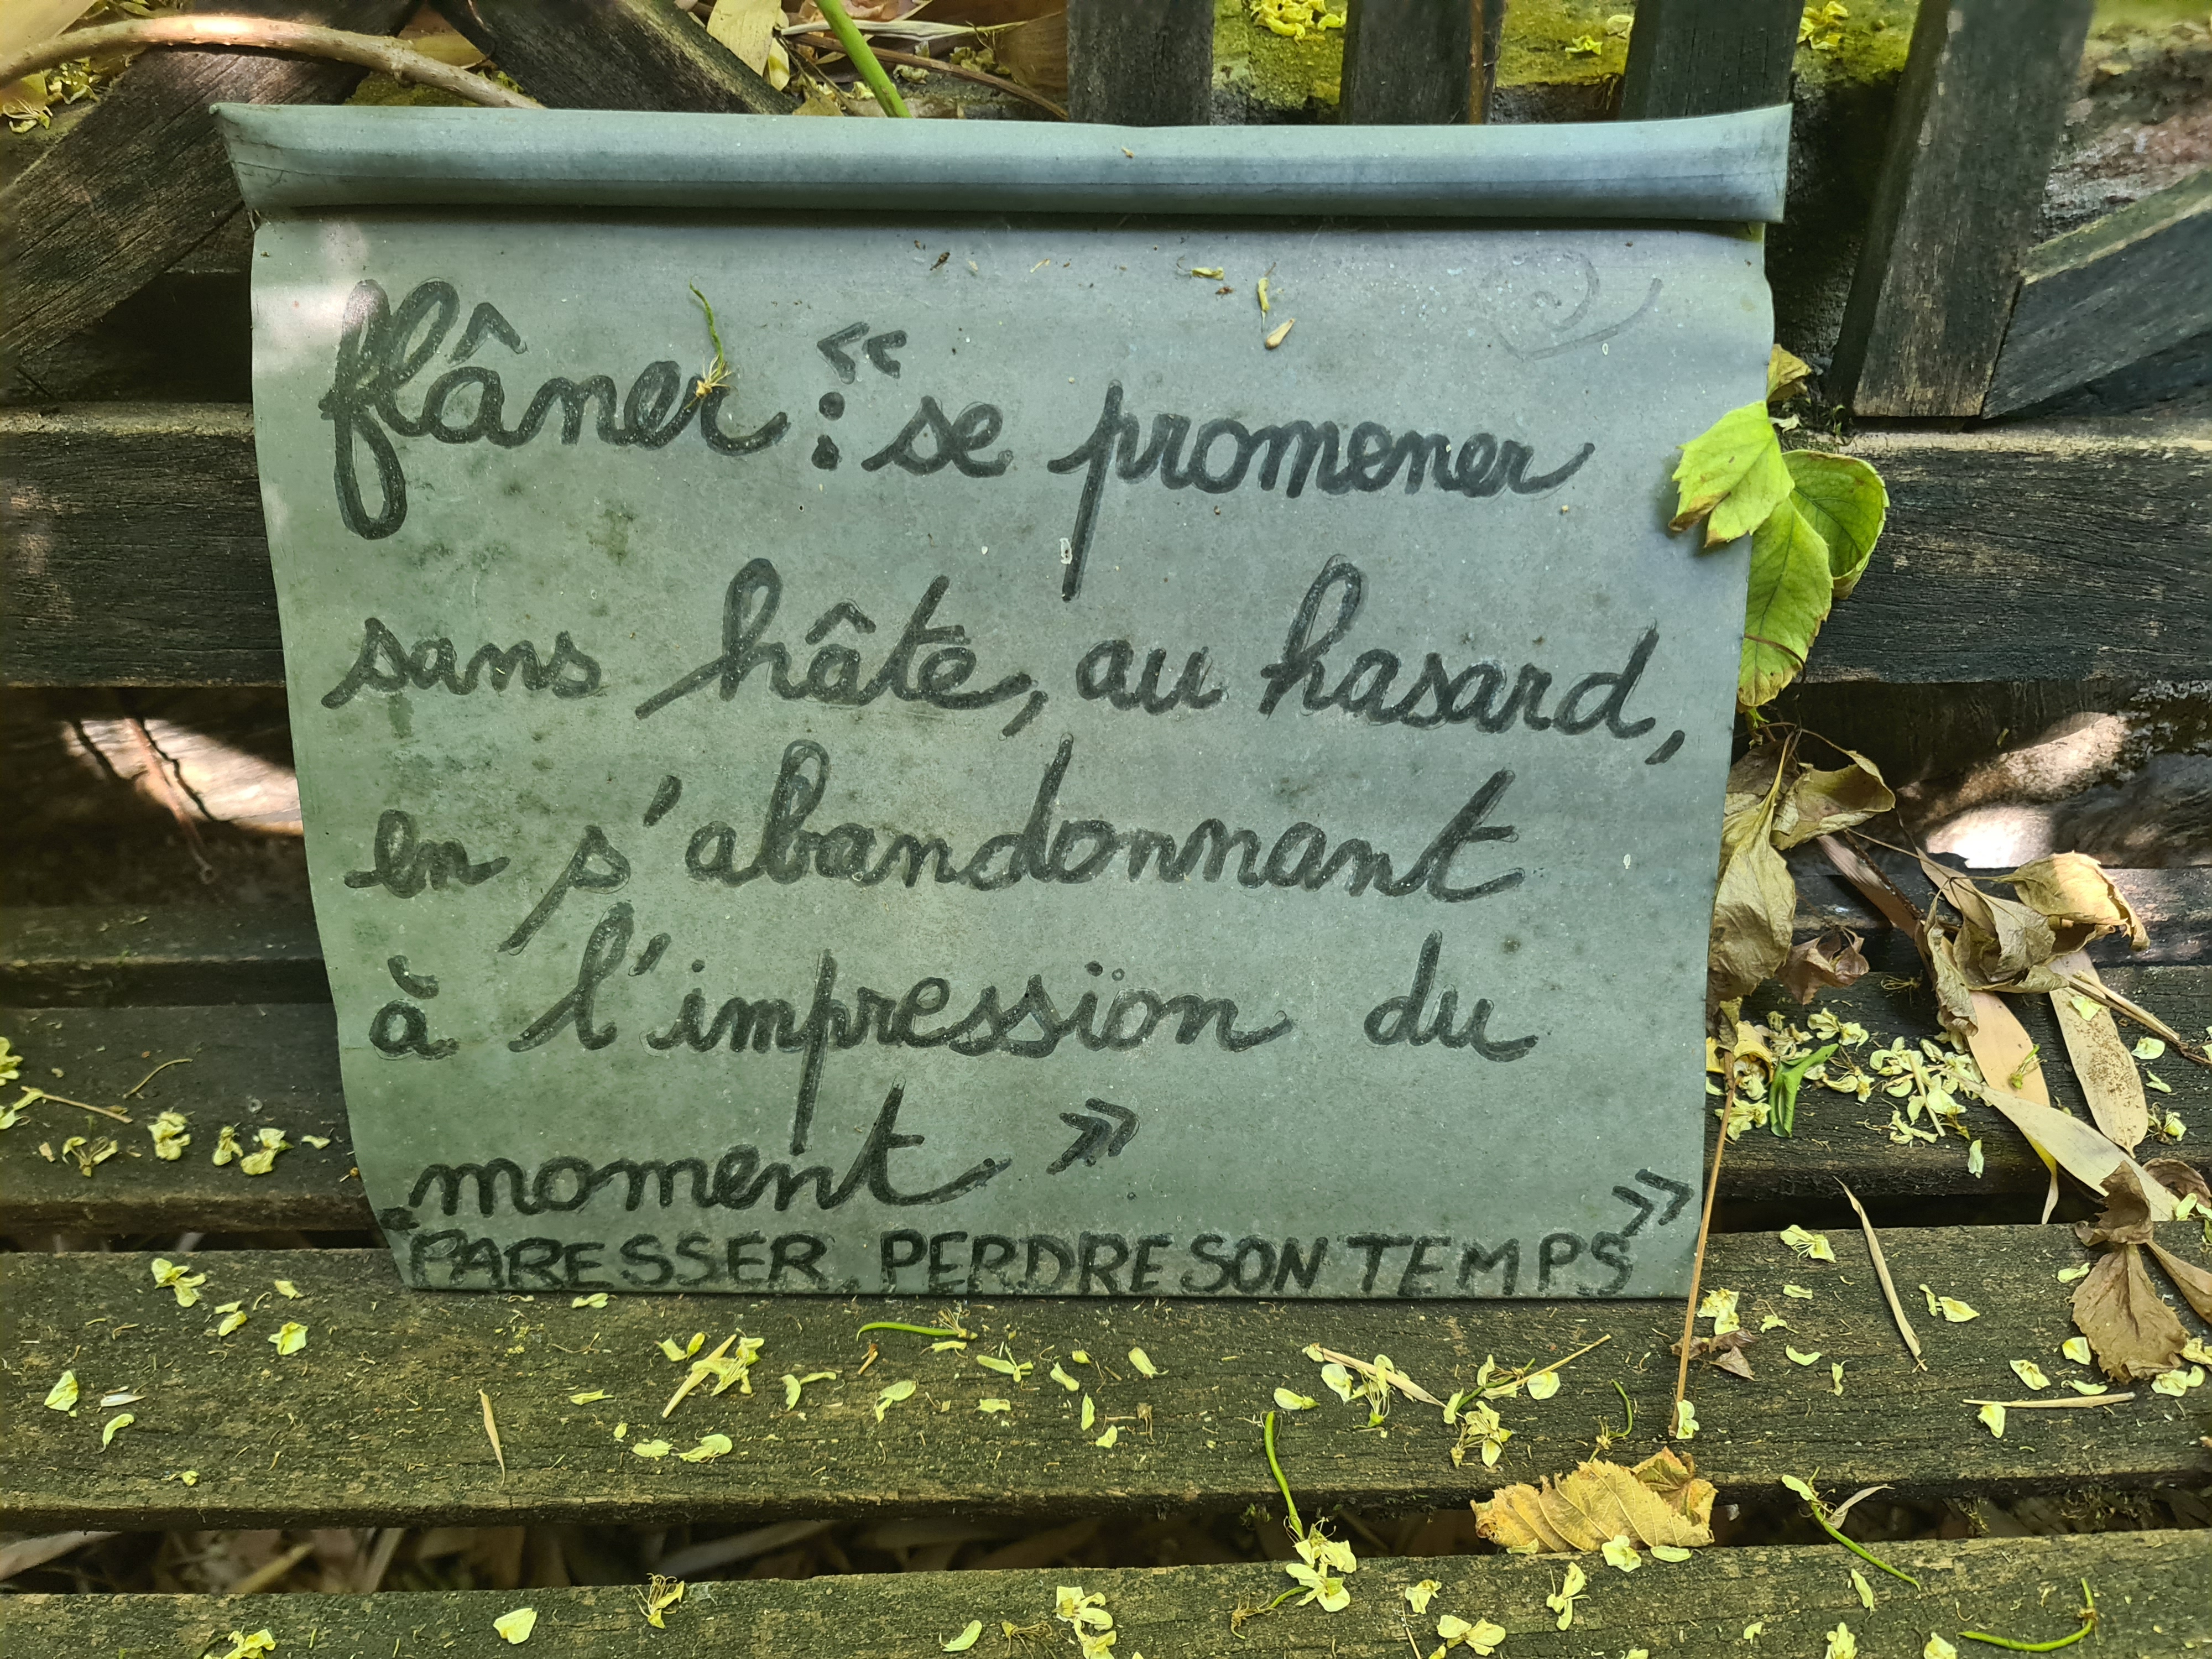 flâner : « se promener
sans hâte, au hasard,
en s'abandonnant
à l'impression du
moment »
« PARESSER, PERDRE SON TEMPS »